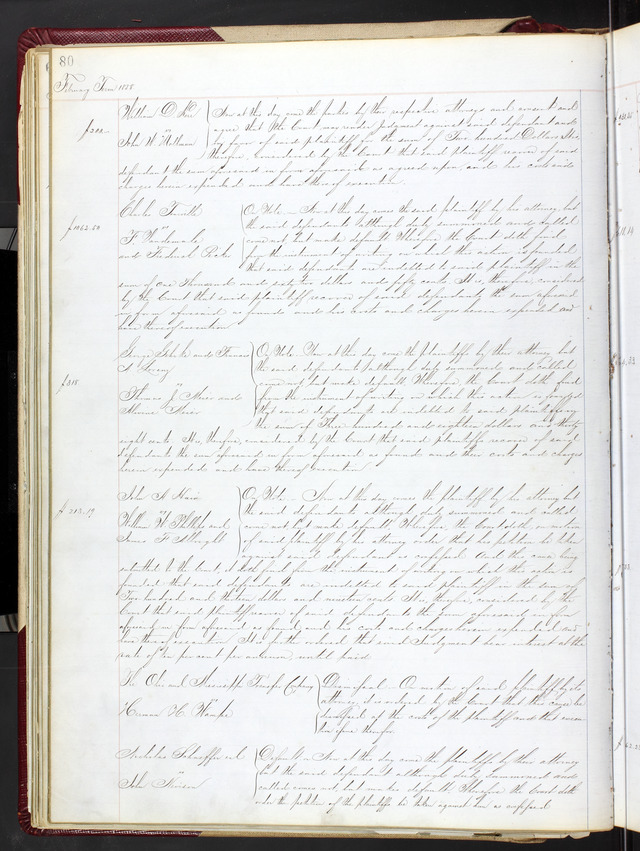 80
February Term 1858
William D
vs
John W
$200.
Now at this day come the parties by their respective attorneys and consent and
agree that the Court may render judgment against said defendant and
in favor of said plaintiff for the sum of Two hundred Dollars. It is,
therefore, considered by the Court that said plaintiff recover of said
defendant the sum aforesaid in form aforesaid as agreed upon, and his costs and
charges herein expended and have thereof execution.
Charles
vs
F.
and Frederick
$1062.50
On Note. Now at this day comes the said plaintiff by his attorney but
the said defendants although duly summoned and called
come not but make default. Wherefore, the Court doth find
from the instrument of writing on which the action is founded
that said defendants are indebted to said plaintiff in the
sum of one thousand and sixty two dollars and fifty cents. It is, therefore, considered
by the Court that said plaintiff recover of said defendants the sum aforesaid
in form aforesaid as found and his costs and charges herein expended and
have thereof execution
George and Thomas
vs
Thomas J. and
$318
On Note. Now at this day come the plaintiffs by their attorney but
the said defendants although duly summoned and called
come not but make default. Wherefore, the Court doth find
from the instrument of writing on which this action is founded
that said defendants are indebted to said plaintiffs in
the sum of Three hundred and eighteen dollars and
eight cents. It is, therefore, considered by the Court that said plaintiffs recover of said
defendants the sum aforesaid in form aforesaid as found and their costs and charges
herein expended and have thereof execution
John A
vs
William W and
James F Albright
$213.19
On Note. Now at this day comes the said plaintiff by his attorney but
the said defendants although duly summoned and called
come not but make default. Wherefore, the Court doth on motion
of said plaintiff by his attorney order that his petition be taken
against said defendants as confessed. And this cause being
submitted to the Court, it doth find from the instrument of writing on which the action is
founded that said defendants are indebted to said plaintiff in the sum of
Two hundred and thirteen dollars and nineteen cents. It is, therefore, considered by the
Court that said plaintiff recover of said defendants the sum aforesaid in form
aforesaid as found, and his costs and charges herein expended and
have thereof execution. It is further ordered that said Judgment bear interest at the
rate of ten per cent per annum, until paid.
The Ohio and Mississippi Company
vs
Herman H.
Dismissal. On motion of said plaintiff by its
attorney, it is ordered by the Court that this cause be
dismissed at the costs of the plaintiff and that execu
tion issue therefor
Nicholas Schaeffer et al
vs
John
Default. Now at this day come the plaintiffs by their attorney
but the said defendant although duly summoned and
called comes not but makes default. Wherefore the Court doth
order the petition of the plaintiffs be taken against him as confessed